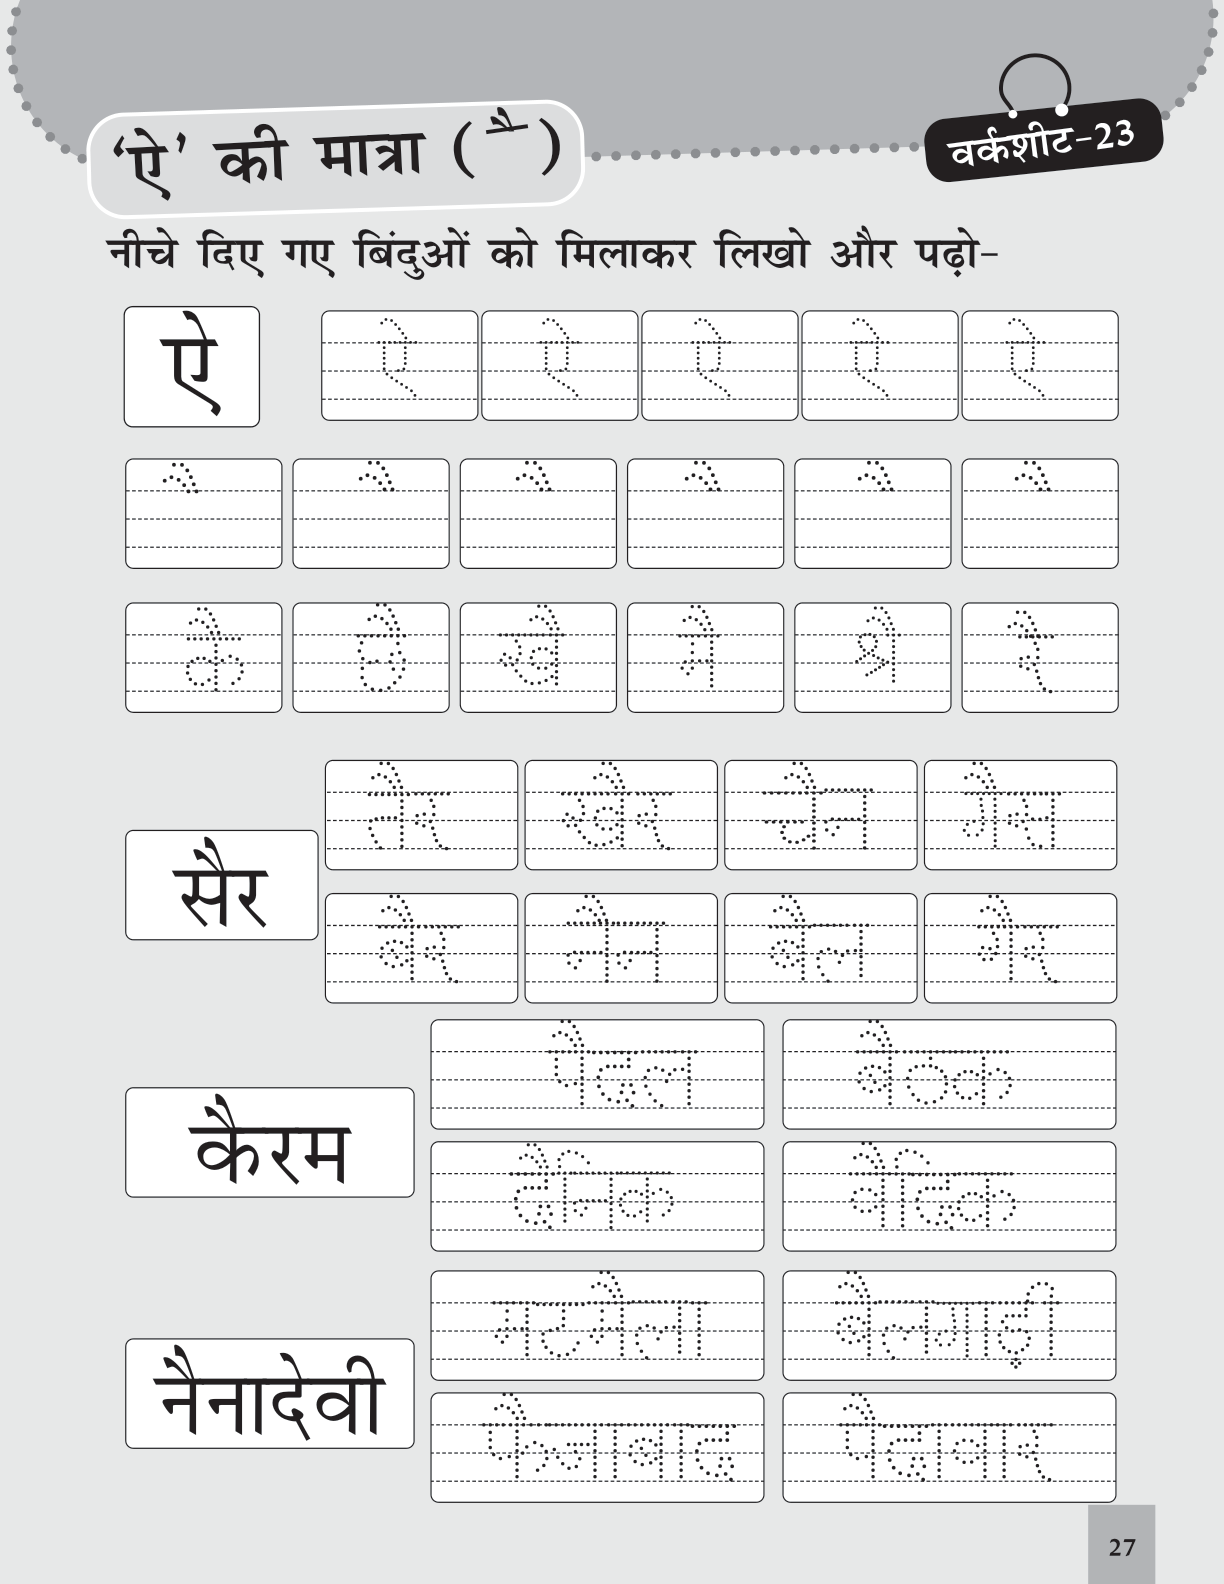 ‘ऐ’ की मात्रा ( ै )
वर्कशीट-23
नीचे दिए गए बिंदुओं को मिलाकर लिखो और पढ़ो-
ऐ ऐ ऐ ऐ ऐ ऐ
ै ै ै ै ै ै
कै खै रै
तैर खैर चैन गैस
सैर
बैर नैन बैल
पैदल बैठक
कैरम
दैनिक वैदिक
मटमैला बैलगाड़ी
नैनादेवी
फैजाबाद पैदावार
27